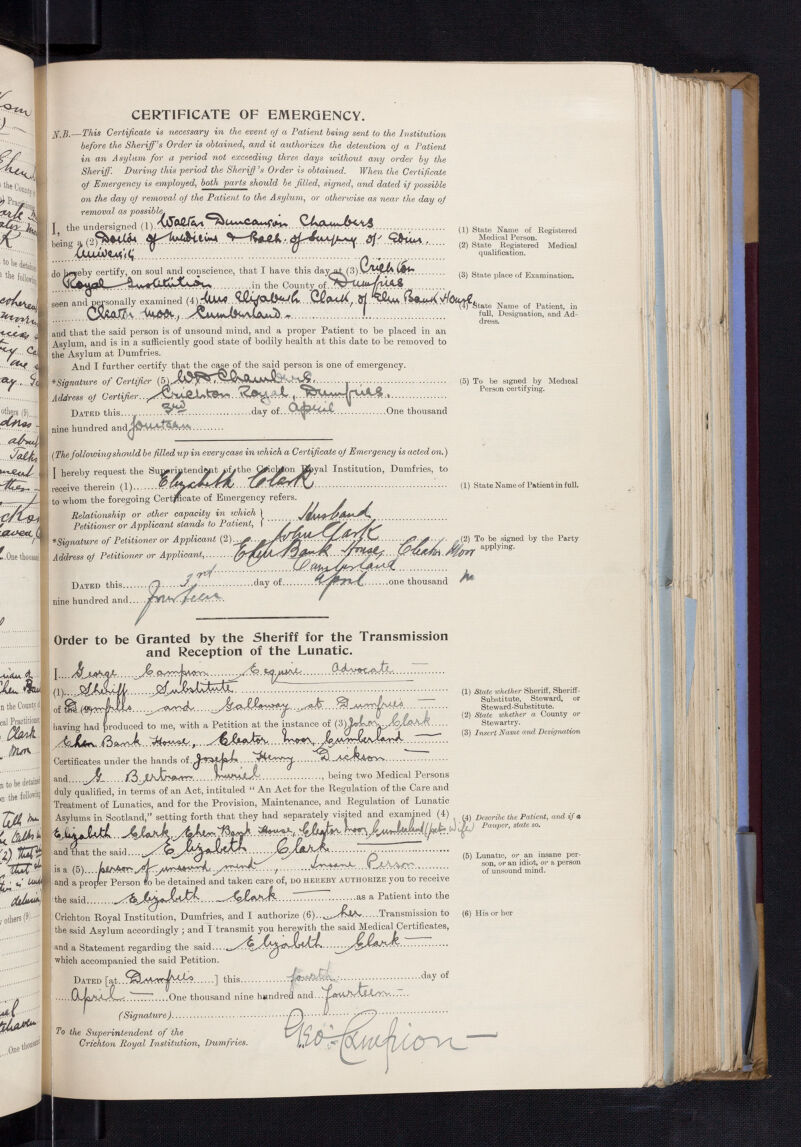 CERTIFICATE OF EMERGENCY.
N.B.—This Certificate is necessary in the event of a Patient being sent to the Institution
before the Sheriff's Order is obtained, and it authorizes the detention of a Patient
in an Asylum for a period not exceeding three days without any order by the
Sheriff. During this period the Sheriff's Order is obtained. When the Certificate
of Emergency is employed, both parts should be filled, signed, and dated if possible
on the day of removal of the Patient to the Asylum, or otherwise as near the day of
removal as possible.
I, the undersigned (1) Walter Duncanson Chambers
being a (2) Doctor of Medicine & Bach. of Surgery of Edin.
University
do hereby certify, on soul and conscience, that I have this day at (3) Crichton
Royal Institution in the County of Dumfries
seen and personally examined (4) Mrs Elizabeth Clark, of Ehen Bank House,
Cleator Moor, Cumberland.
and that the said person is of unsound mind, and a proper Patient to be placed in an
Asylum, and is in a sufficiently good state of bodily health at this date to be removed to
the Asylum at Dumfries.
And I further certify that the case of the said person is one of emergency.
*Signature of Certifier (5) W.D. Chambers.
Address of Certifier Crichton Royal, Dumfries.
DATED this 3rd day of April One thousand
nine hundred and fourteen
(The following should be filled up in every case in which a Certificate of Emergency is acted on.)
I hereby request the Superintendent of the Crichton Royal Institution, Dumfries, to
receive therein (1) Elizabeth Clark
to whom the foregoing Certificate of Emergency refers.
Relationship or other capacity in which } Husband
Petitioner or Applicant stands to Patient, {
*Signature of Petitioner or Applicant (2) John Clark
Address of Petitioner or Applicant, Ehen Bank House, Cleator Moor
Cumberland
DATED this 3rd day of April one thousand
nine hundred and fourteen
Order to be Granted by the Sheriff for the Transmission
and Reception of the Lunatic.
I George Campion Esquire Advocate
(1) Sheriff Substitute
of the Dumfries and Galloway at Dumfries
having had produced to me, with a Petition at the instance of (3) John Clark
Ehen Bank House, Cleator Moor, Cumberland
Certificates under the hands of Joseph Henry Dickson
and G Bertram Muriel, being two Medical Persons
duly qualified, in terms of an Act, intituled "An Act for the Regulation of the Care and
Treatment of Lunatics, and for the Provision, Maintenance, and Regulation of Lunatic
Asylums in Scotland," setting forth that they had separately visited and examined (4)
Elizabeth Clark, Ehen Bank House, Cleator Moor, Cumberland (pet's wife)
and that the said Elizabeth Clark
is a (5) person of unsound mind, Insane Person
and a proper Person to be detained and taken care of, DO HEREBY AUTHORIZE you to receive
the said Elizabeth Clark as a Patient into the
Crichton Royal Institution, Dumfries, and I authorize (6) her Transmission to
the said Asylum accordingly; and I transmit you herewith the said Medical Certificates,
and a Statement regarding the said Elizabeth Clark
which accompanied the said Petition.
DATED [at Dumfries ] this fourth day of
April One thousand nine hundred and fourteen
(Signature)
To the Superintendent of the
Crichton Royal Institution, Dumfries.
Geo: Campion
(1) State Name of Registered
Medical Person.
(2) State Registered Medical
qualification.
(3) State place of Examination.
(4) State Name of Patient, in
full, Designation, and Ad-
dress.
(5) To be signed by Medical
Person certifying.
(1) State Name of Patient in full.
(2) To be signed by the Party
applying.
(1) State whether Sheriff, Sheriff-
Substitute, Steward, or
Steward-Substitute.
(2) State whether a County or
Stewartry.
(3) Insert Name and Designation
(4) Describe the Patient, and if a
Pauper, state so.
(5) Lunatic, or an insane per-
son, or an idiot, or a person
of unsound mind.
(6) His or her